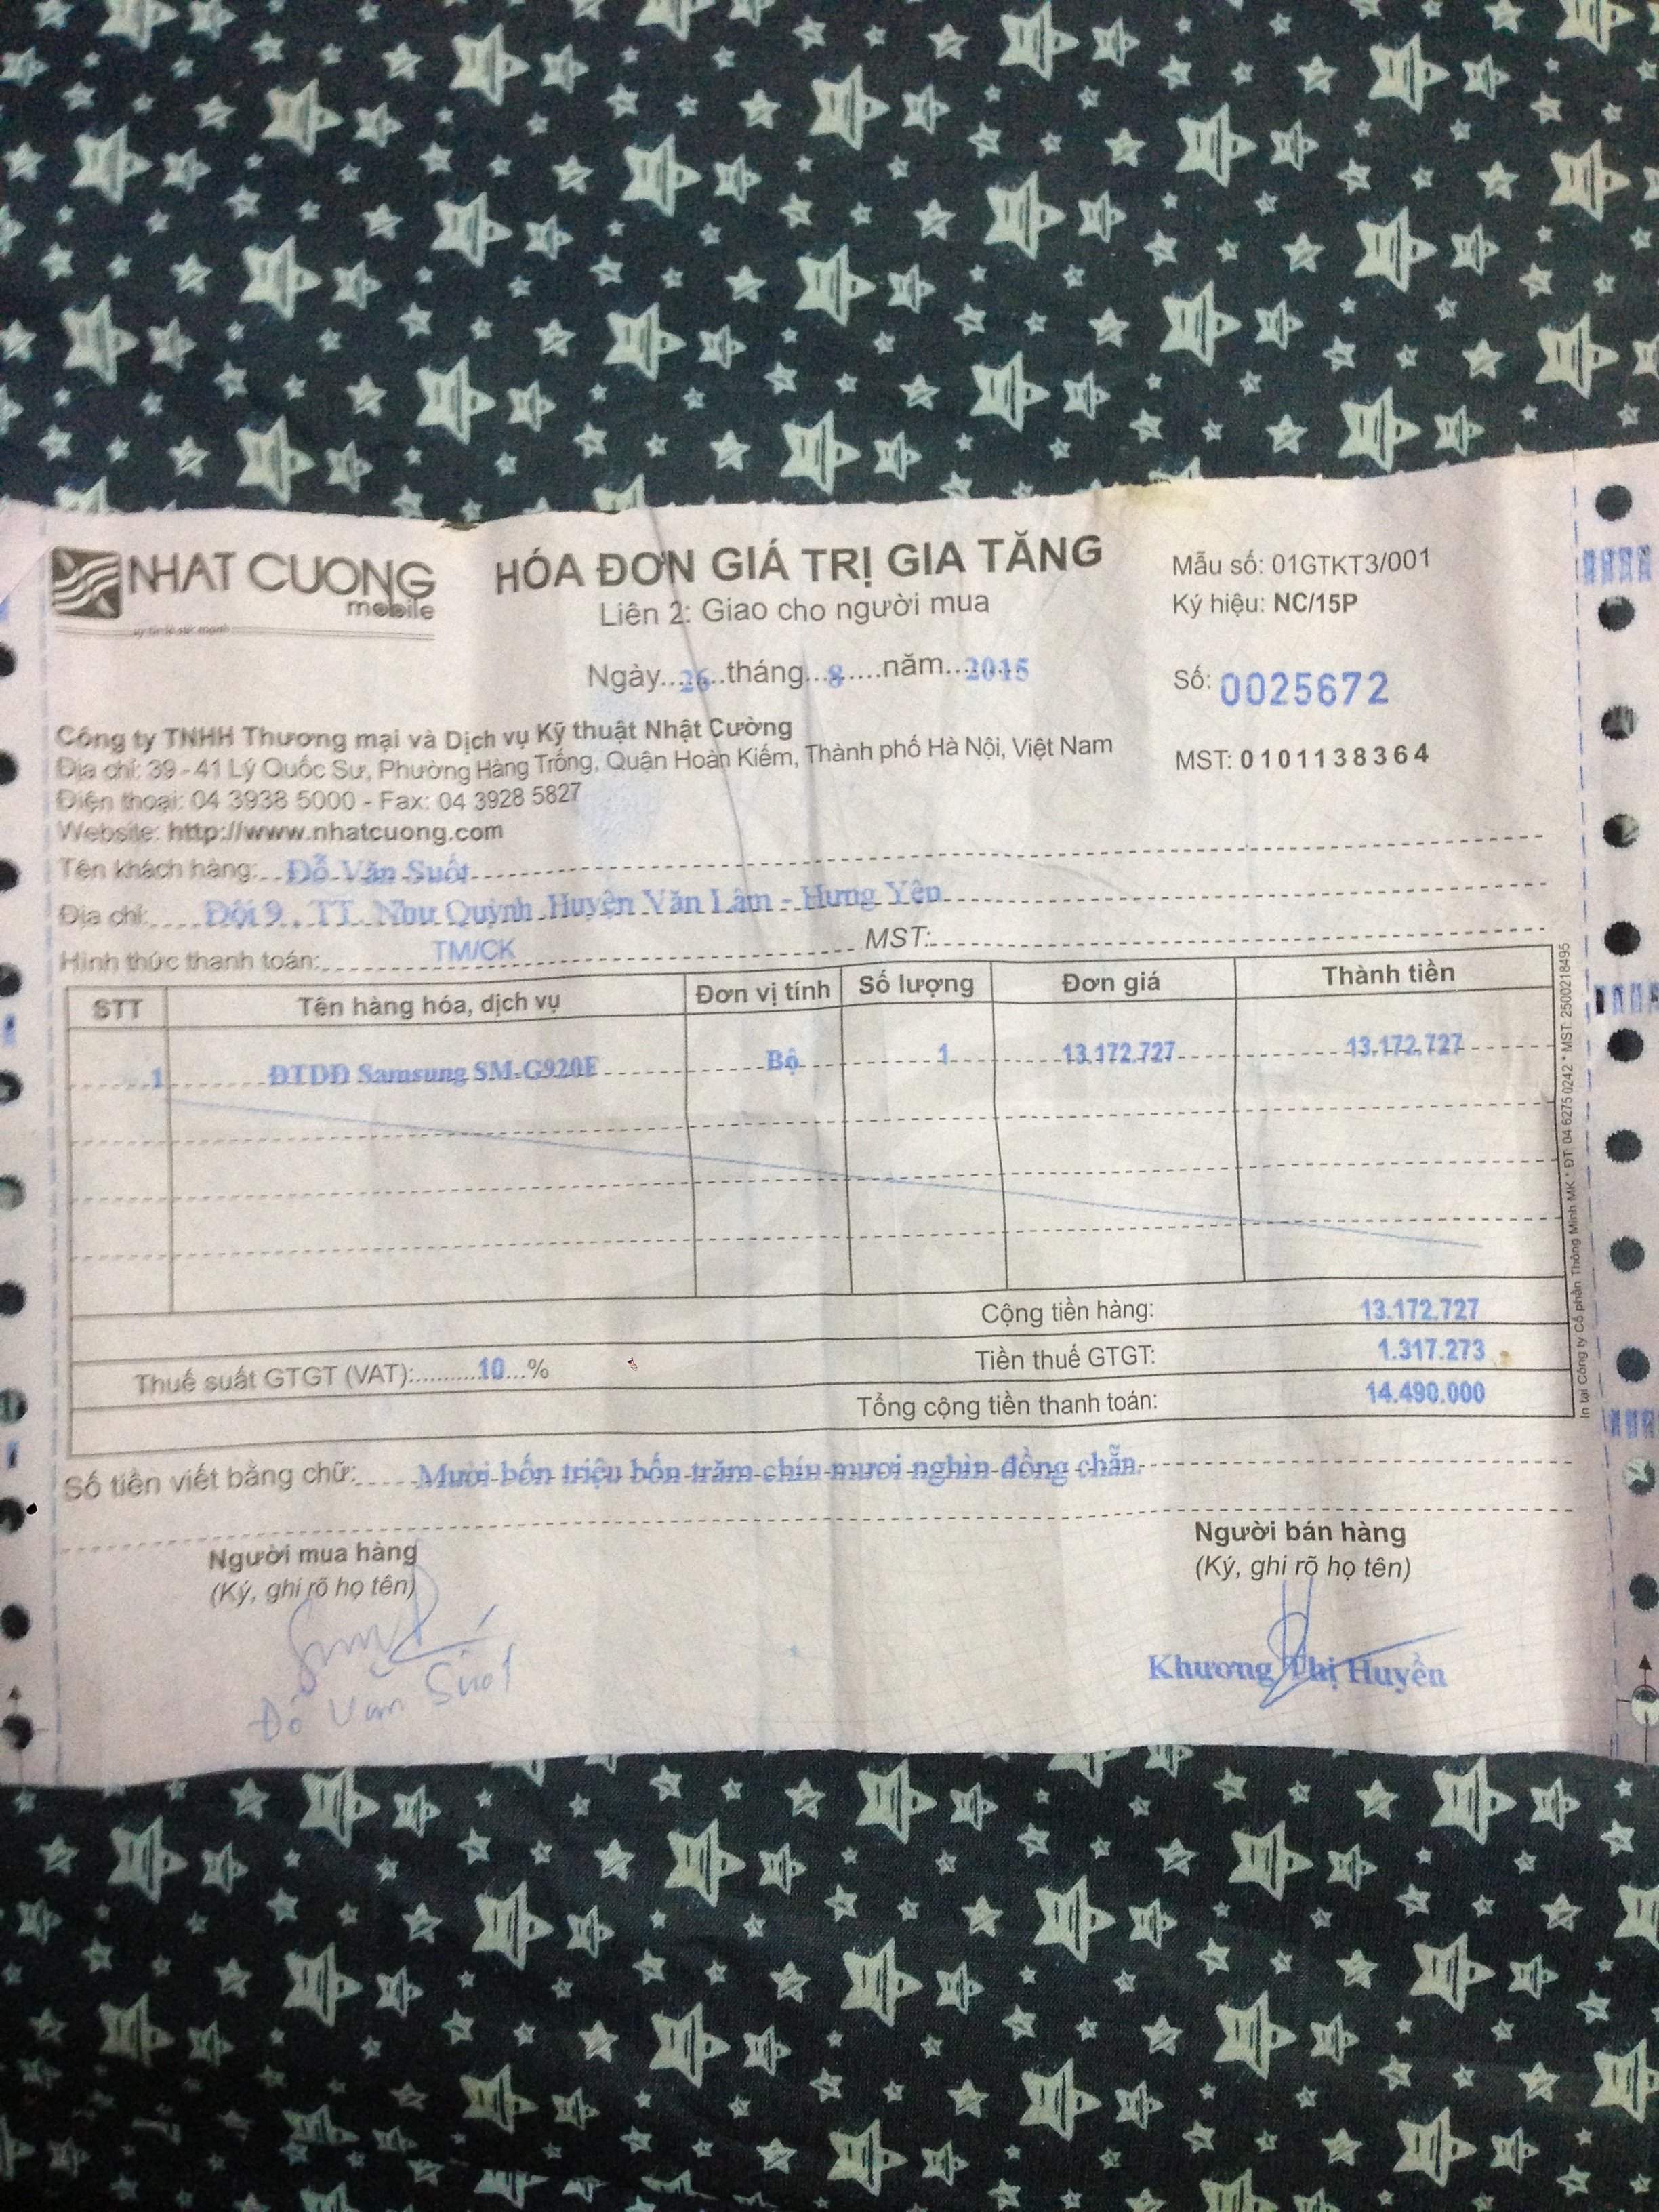 NHAT CUONG
mobile
HÓA ĐƠN GIÁ TRỊ GIA TĂNG
Liên 2: Giao cho người mua
Mẫu số: 01GTKT3/001
Ký hiệu: NC/15P
Ngày...26..tháng...8....năm...2015
Số: 0025672
Công ty TNHH Thương mại và Dịch vụ Kỹ thuật Nhật Cường
Địa chỉ: 39 - 41 Lý Quốc Sư, Phường Hàng Trống, Quận Hoàn Kiếm, Thành phố Hà Nội, Việt Nam
MST: 0101138364
Điện thoại: 04 3938 5000 - Fax: 04 3928 5827
Website: http://www.nhatcuong.com
Tên khách hàng: Đỗ Văn Suốt
Địa chỉ: Đội 9 , TT. Như Quỳnh .Huyện Văn Lâm - Hưng Yên
Hình thức thanh toán: TM/CK MST:
STT Tên hàng hóa, dịch vụ Đơn vị tính Số lượng Đơn giá Thành tiền
1 ĐTDĐ Samsung SM-G920F Bộ 1 13.172.727 13.172.727
Cộng tiền hàng: 13.172.727
Thuế suất GTGT (VAT):..........10...% Tiền thuế GTGT: 1.317.273
Tổng cộng tiền thanh toán: 14.490.000
Số tiền viết bằng chữ: Mười bốn triệu bốn trăm chín mươi nghìn đồng chẵn.
Người mua hàng
(Ký, ghi rõ họ tên)
Người bán hàng
(Ký, ghi rõ họ tên)
Đỗ Văn Suốt
Khương Thị Huyền
In tại Công ty Cổ phần Thông Minh MK * ĐT: 04 6275 0242 * MST: 2500218495